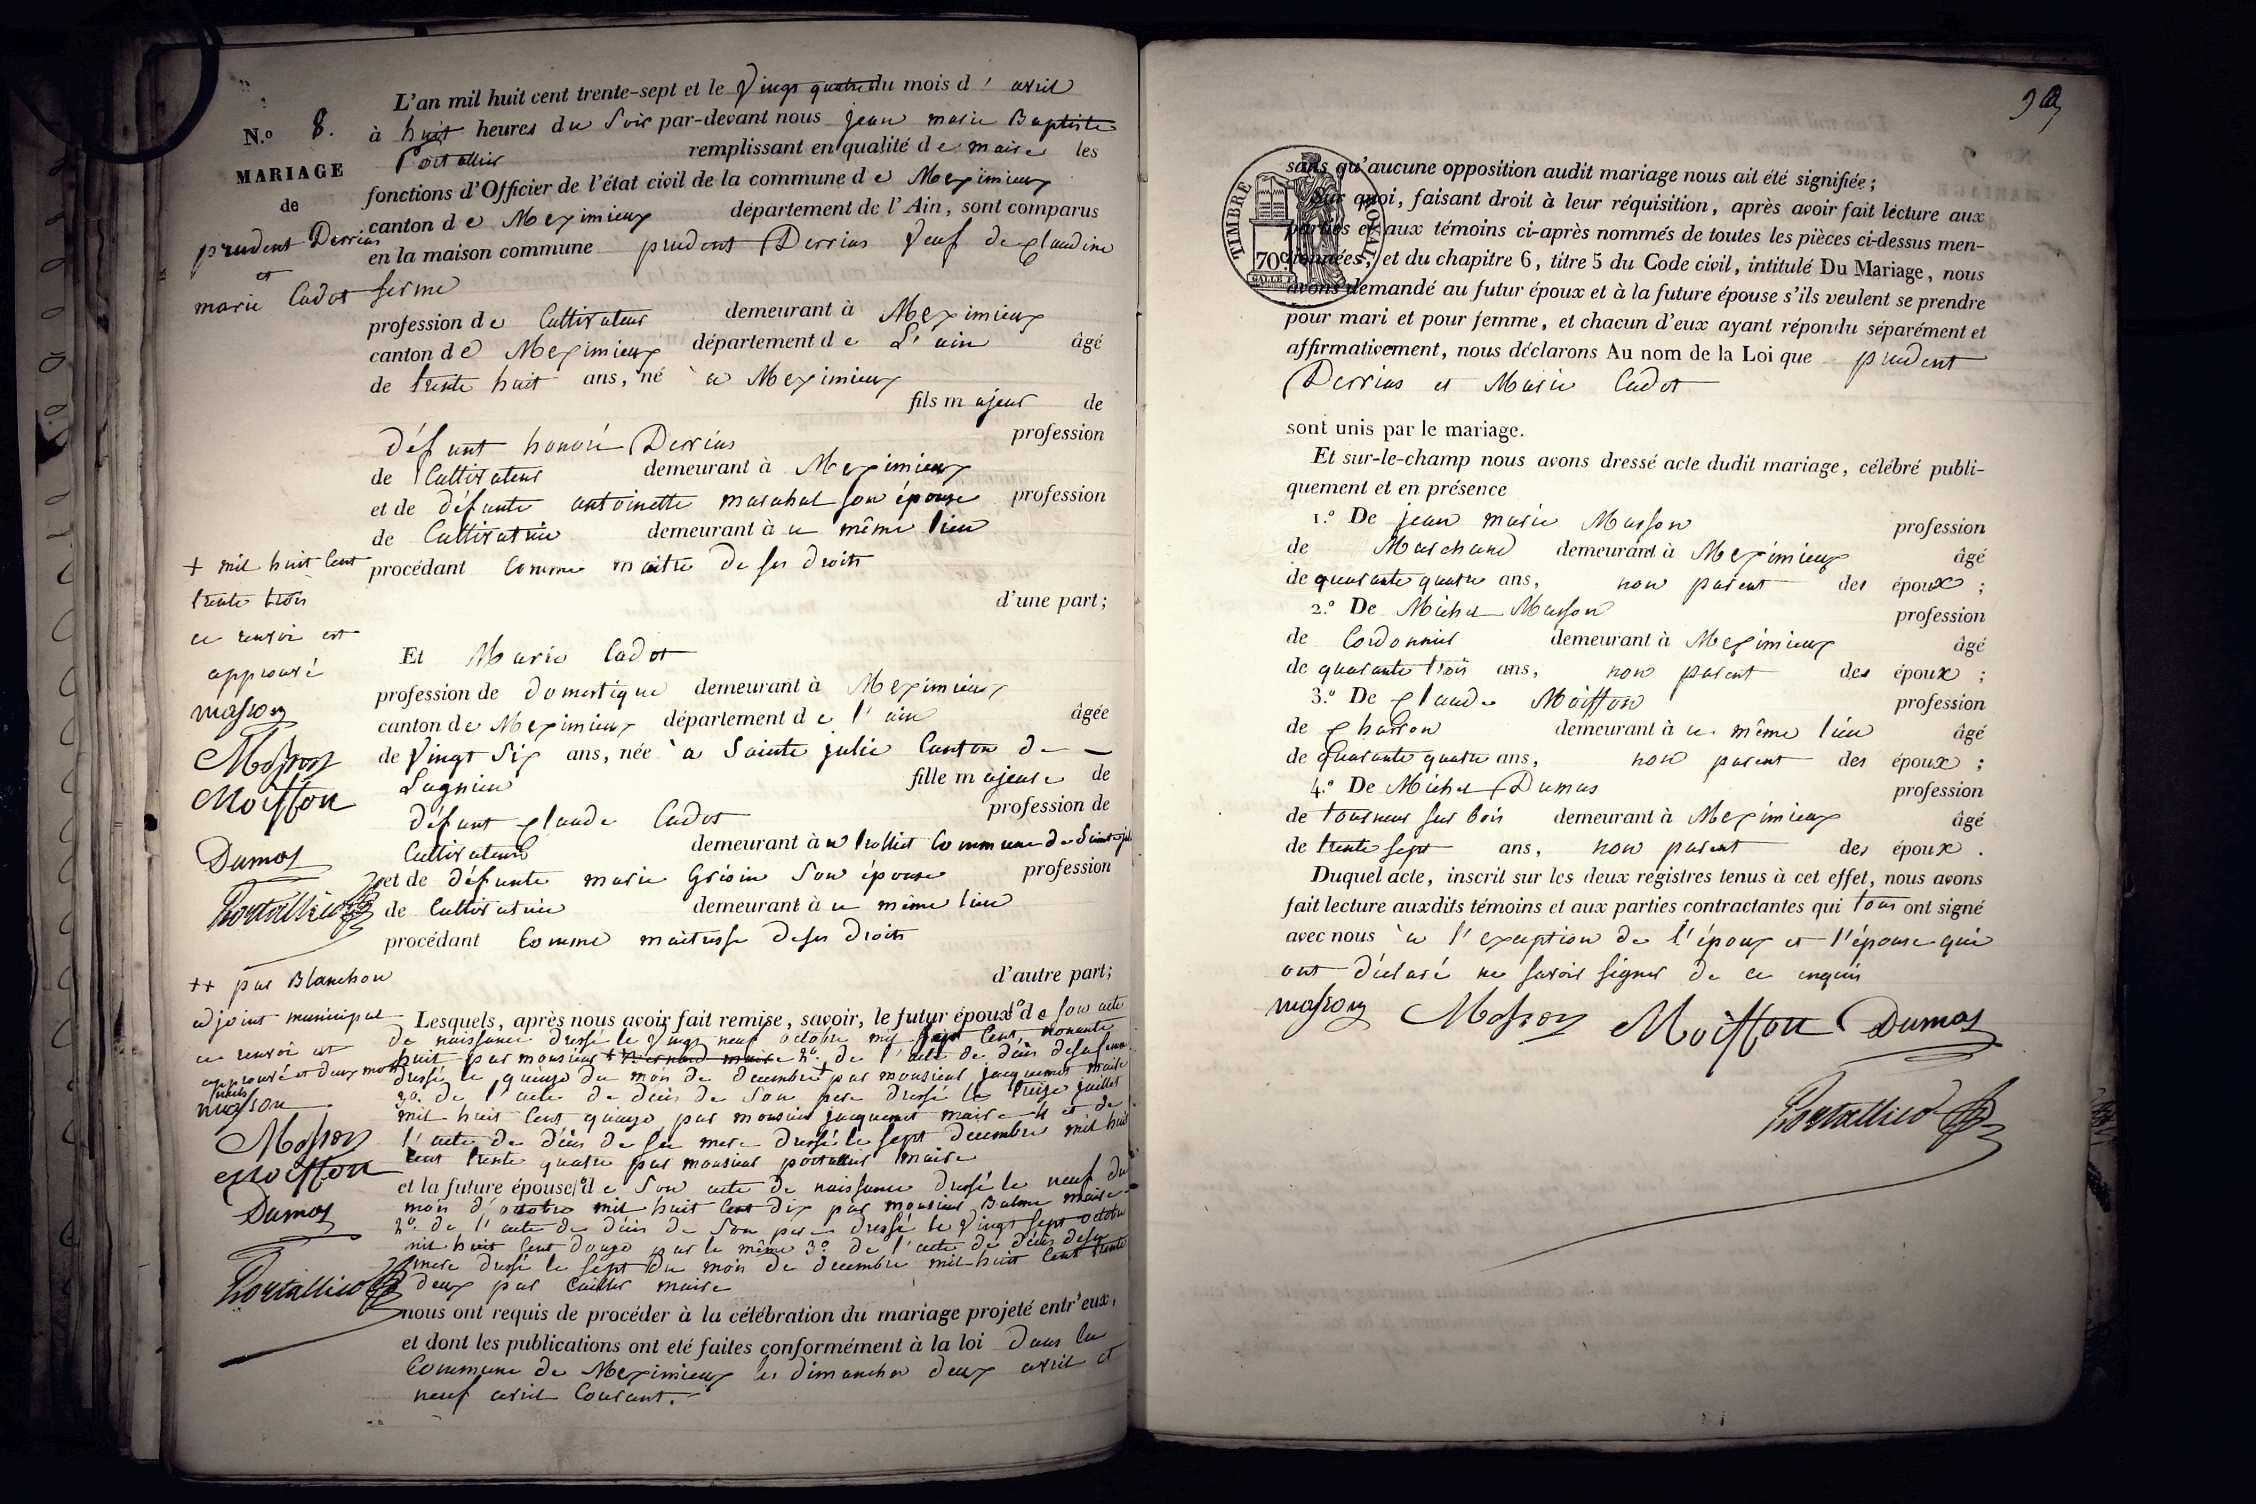 N.o 8.
MARIAGE
de
prudent Derrias
et
marie Cadot
L'an mil huit cent trente-sept et le Vingt quatre du mois d' avril
à huit heures du Soir par-devant nous jean marie Baptiste
Portallier remplissant en qualité de maire les
fonctions d'Officier de l'état civil de la commune de Meximieux
canton de Meximieux département de l'Ain, sont comparus
en la maison commune prudent Derrias Veuf de Claudine
ferme
profession de Cultivateur demeurant à Meximieux
canton de Meximieux département de L'ain âgé
de trente huit ans, né à Meximieux
fils majeur de
défunt honoré Derrias profession
de Cultivateur demeurant à Meximieux
et de défunte antoinette marchal son épouse profession
de Cultivatrice demeurant à ce même lieu
procédant Comme maitre de ses droits
d'une part;
Et Marie Cadot
profession de domestique demeurant à Meximieux
canton de Meximieux département de l'ain âgée
de Vingt Six ans, née à Sainte julie Canton de
Lagnieu fille majeure de
défunt Claude Cadot profession de
Cultivateur demeurant à trolliet Commune de Sainte jul
et de défunte marie Grisin Son épouse profession
de Cultivatrice demeurant à ce même lieu
procédant Comme maitresse de ses droits
d'autre part;
Lesquels, après nous avoir fait remise, savoir, le futur époux 1o de son acte
de naissance dressé le Vingt neuf octobre mil sept cent nonante
huit par monsieur ++ maire 2o de l'acte de décès de sa femme
dressé le quinze du mois de decembre + par monsieur jacquemet maire
3o de l'acte de décès de Son pere dressé le treize juillet
mil huit Cent quinze par monsieur jacquemet maire 4 et de
l'acte de décès de sa mere dressé le sept decembre mil huit
Cent trente quatre par monsieur portallier maire
et la future épouse 1o de Son acte de naissance dressé le neuf du
mois d'octobre mil huit Cent dix par monsieur Balme maire
2o de l'acte de décès de Son pere dressé le Vingt sept octobre
mil huit Cent douze par le même 3o de l'acte de décès de sa
mere dressé le sept du mois de decembre mil huit Cent trente
deux par Cuillier maire
nous ont requis de procéder à la célébration du mariage projeté entr'eux,
et dont les publications ont eté faites conformément à la loi Dans la
Commune de Meximieux les dimanches deux avril et
neuf avril Courant.
+ mil huit Cent
trente trois
ce renvoi est
approuvé
masson
Masson
Moiffon
Dumas
Portallier
++ par Blanchon
adjoint municipal
ce renvoi est
approuvé et deux mots
nuls
masson
Masson
Moiffon
Dumas
Portallier
TIMBRE ROYAL
70c
sans qu'aucune opposition audit mariage nous ait été signifiée;
Sur quoi, faisant droit à leur réquisition, après avoir fait lecture aux
parties et aux témoins ci-après nommés de toutes les pièces ci-dessus men-
tionnées, et du chapitre 6, titre 5 du Code civil, intitulé Du Mariage, nous
avons demandé au futur époux et à la future épouse s'ils veulent se prendre
pour mari et pour femme, et chacun d'eux ayant répondu séparément et
affirmativement, nous déclarons Au nom de la Loi que prudent
Derrias et Marie Cadot
sont unis par le mariage.
Et sur-le-champ nous avons dressé acte dudit mariage, célébré publi-
quement et en présence
1.o De jean marie Masson profession
de Marchand demeurant à Meximieux âgé
de quarante quatre ans, non parent des époux;
2.o De Michel Masson profession
de Cordonnier demeurant à Meximieux âgé
de quarante trois ans, non parent des époux;
3.o De Claude Moiffon profession
de Charron demeurant à ce même lieu âgé
de Quarante quatre ans, non parent des époux;
4.o De Michel Dumas profession
de tourneur sur bois demeurant à Meximieux âgé
de trente sept ans, non parent des époux.
Duquel acte, inscrit sur les deux régistres tenus à cet effet, nous avons
fait lecture auxdits témoins et aux parties contractantes qui tous ont signé
avec nous à l'exception de l'époux et l'épouse qui
ont déclaré ne savoir signer de ce enquis
masson Masson Moiffon Dumas
Portallier